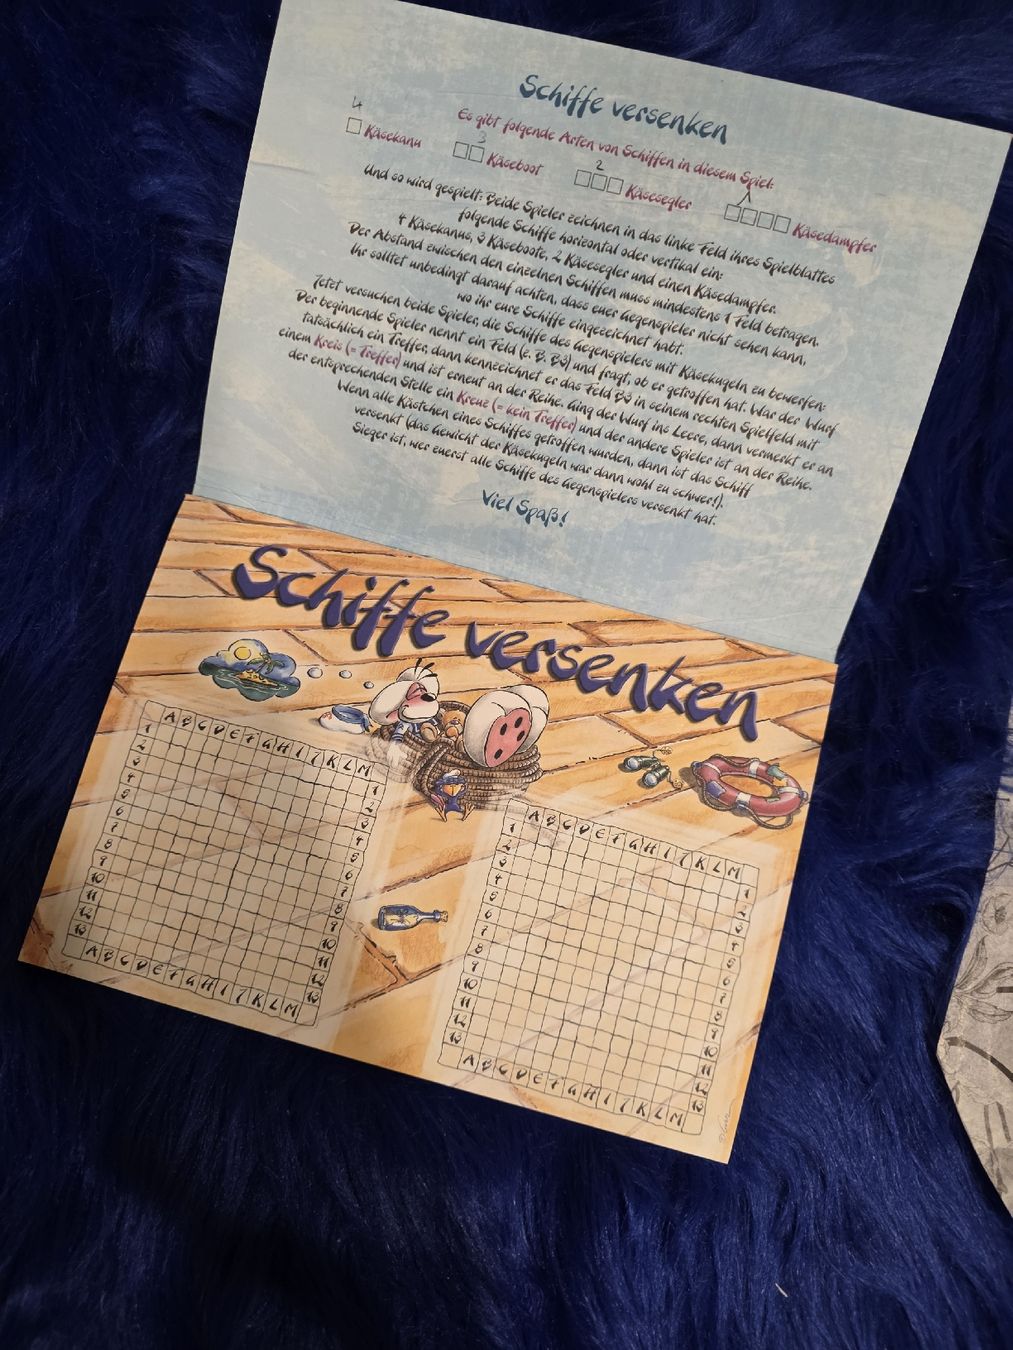 Schiffe versenken
Es gibt folgende Arten von Schiffen in diesem Spiel:
4 3 2 1
Käsekanu Käseboot Käsesegler Käsedampfer
Und so wird gespielt: Beide Spieler zeichnen in das linke Feld ihres Spielblattes
folgende Schiffe horizontal oder vertikal ein:
4 Käsekanus, 3 Käseboote, 2 Käsesegler und einen Käsedampfer.
Der Abstand zwischen den einzelnen Schiffen muss mindestens 1 Feld betragen.
Ihr solltet unbedingt darauf achten, dass euer Gegenspieler nicht sehen kann,
wo ihr eure Schiffe eingezeichnet habt.
Jetzt versuchen beide Spieler, die Schiffe des Gegenspielers mit Käsekugeln zu bewerfen:
Der beginnende Spieler nennt ein Feld (z. B. B3) und fragt, ob er getroffen hat. War der Wurf
tatsächlich ein Treffer, dann kennzeichnet er das Feld B3 in seinem rechten Spielfeld mit
einem Kreis (= Treffer) und ist erneut an der Reihe. Ging der Wurf ins Leere, dann vermerkt er an
der entsprechenden Stelle ein Kreuz (= kein Treffer) und der andere Spieler ist an der Reihe.
Wenn alle Kästchen eines Schiffes getroffen wurden, dann ist das Schiff
versenkt (das Gewicht der Käsekugeln war dann wohl zu schwer!).
Sieger ist, wer zuerst alle Schiffe des Gegenspielers versenkt hat.
Viel Spaß!
Schiffe versenken
A B C D E F G H I J K L M
1 1
2 2
3 3
4 4
5 5
6 6
7 7
8 8
9 9
10 10
11 11
12 12
13 13
A B C D E F G H I J K L M
A B C D E F G H I J K L M
1 1
2 2
3 3
4 4
5 5
6 6
7 7
8 8
9 9
10 10
11 11
12 12
13 13
A B C D E F G H I J K L M